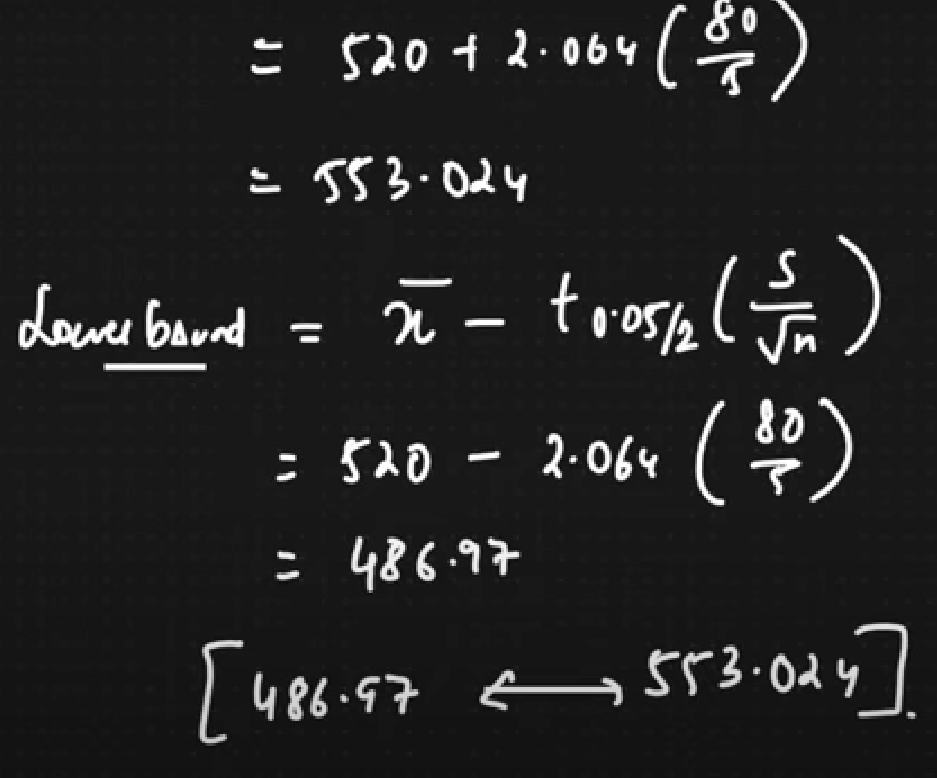 = 520 + 2.064 (80/5)
= 553.024
Lower bound = x̄ - t0.05/2 (s/√n)
= 520 - 2.064 (80/5)
= 486.97
[486.97 ⟷ 553.024].